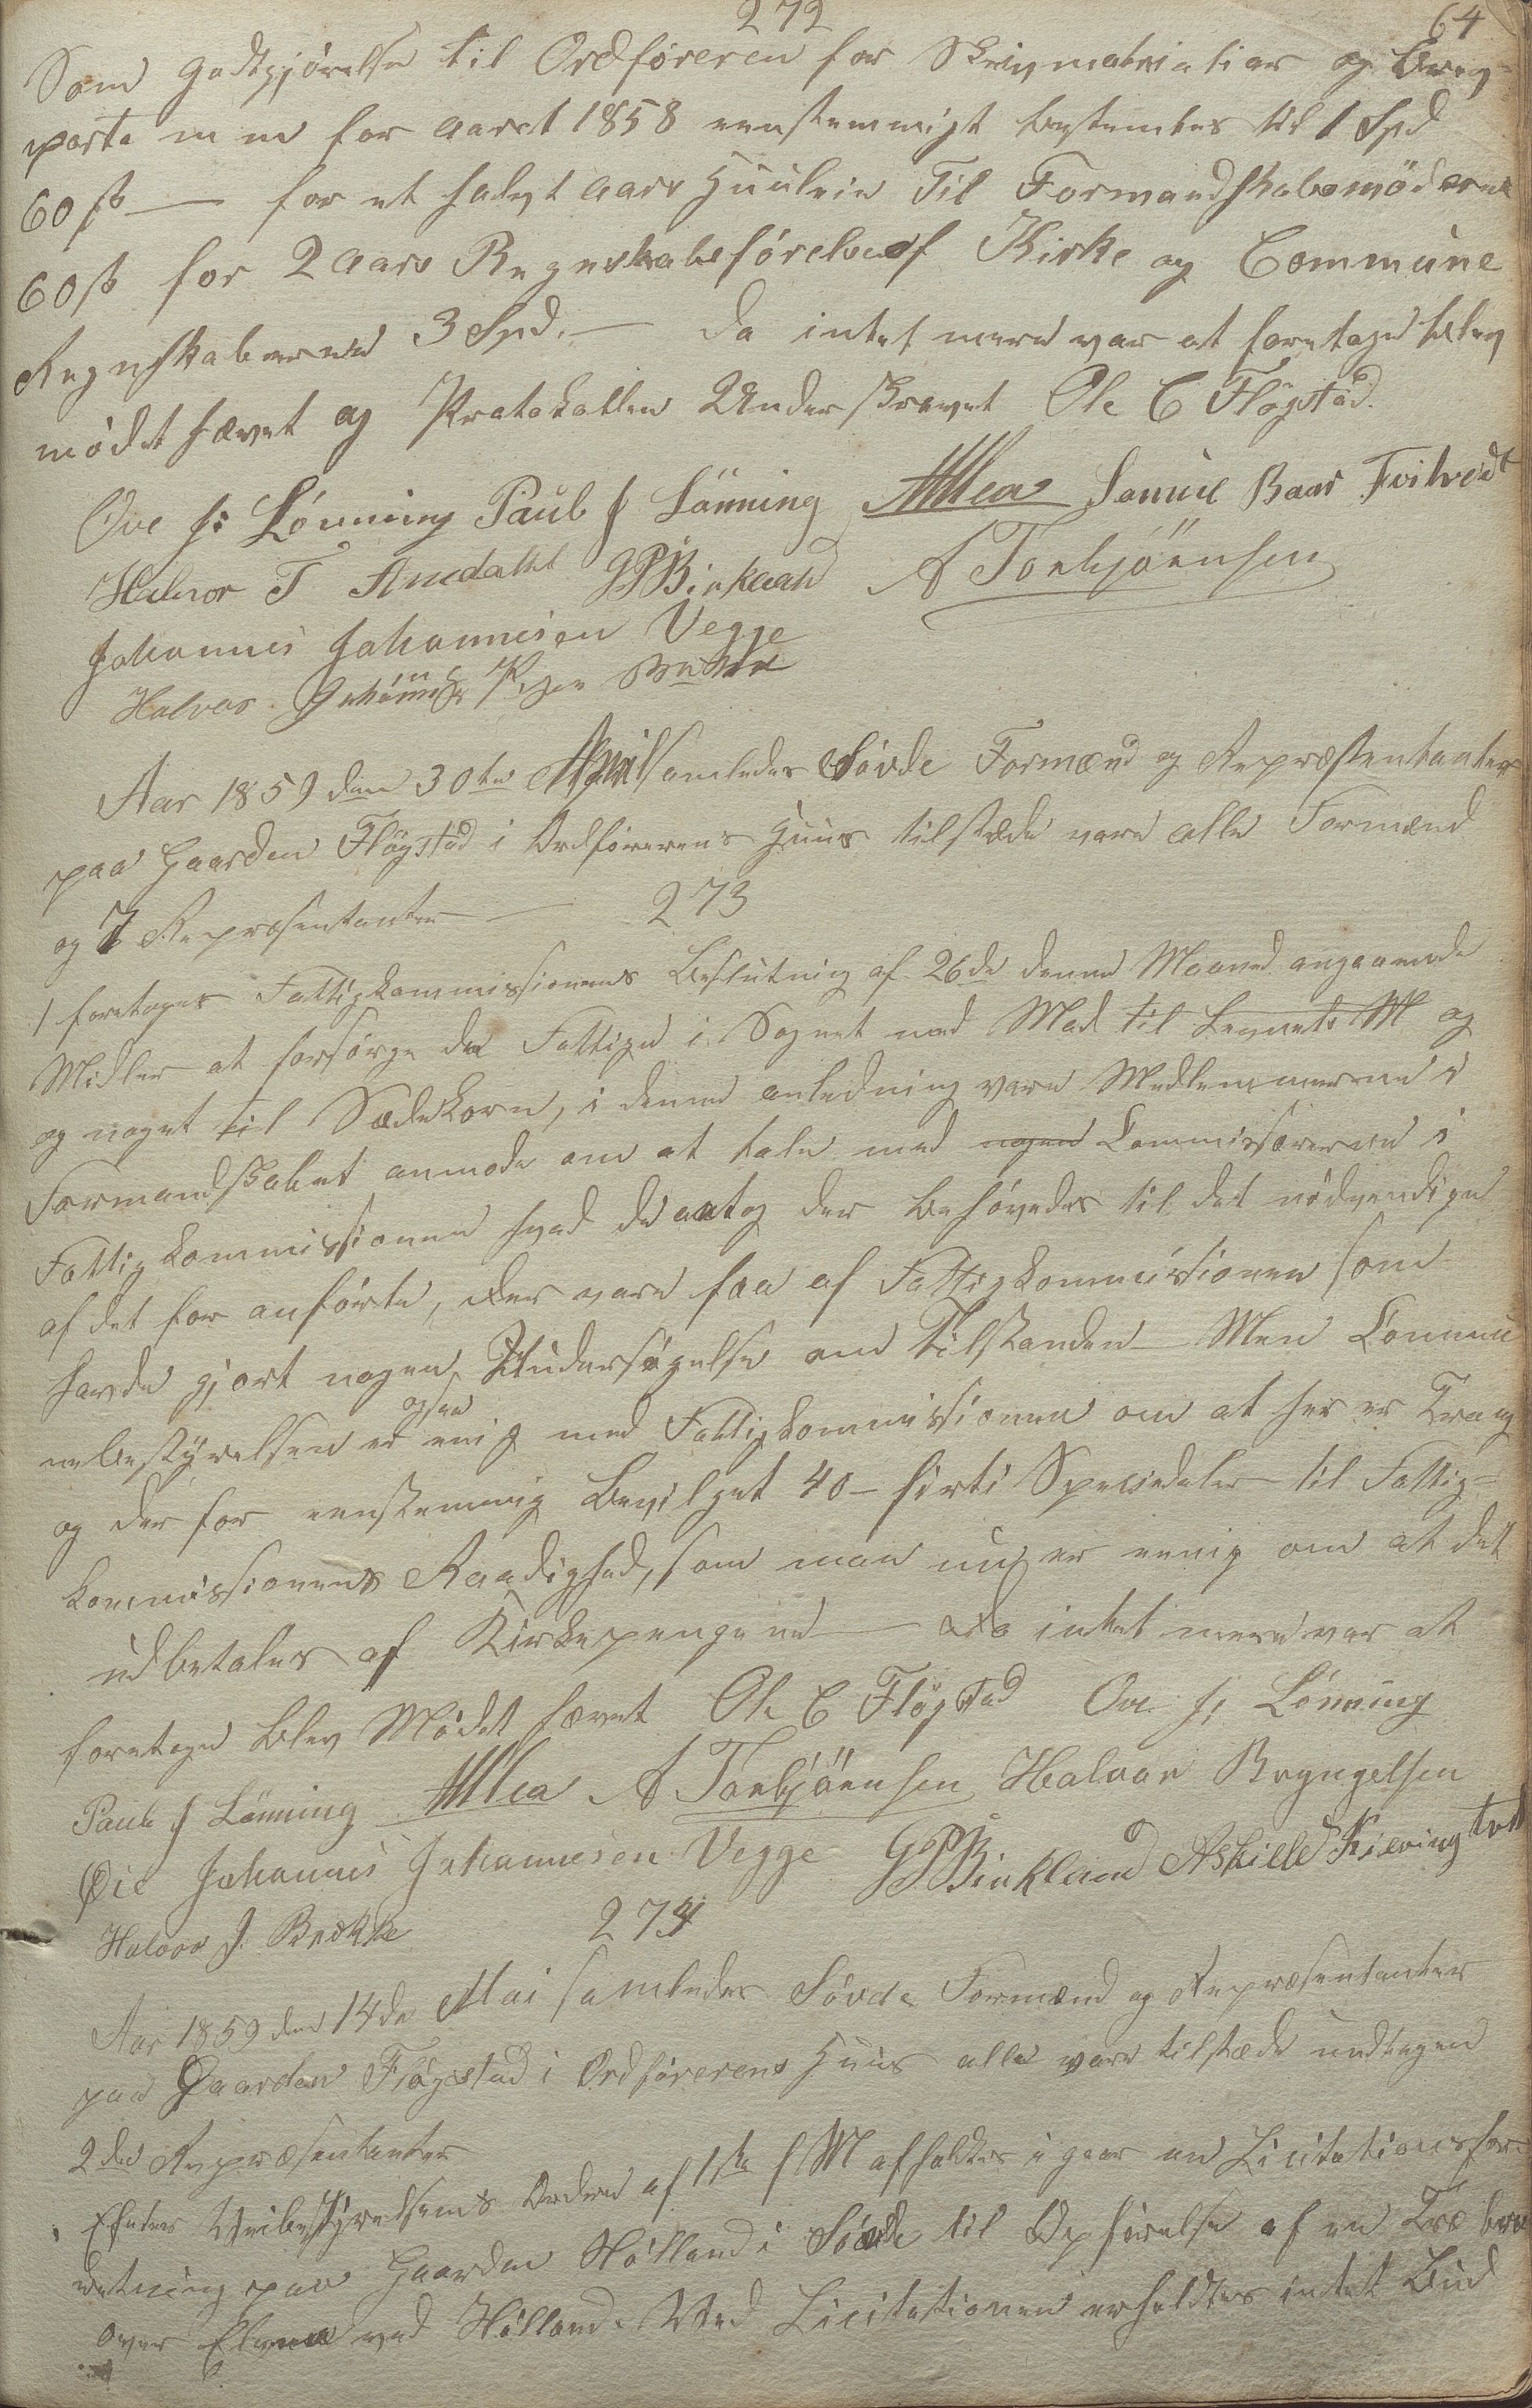 272
64
Som Godtgjörelse til Ordföreren for Skrivmatriatier og Brev
porto m m for aaret 1858 eenstemmigt bestemtes til 1 Spd
60 ß — for et halvt aars Huusleie Til Formandskabsmöderne
60 ß for 2 aars Regnskabsförelse af Kirke og Commune
Regnskaberne 3 Spd. — Da intet mere var at foretage blev
mödet hævet og Protokollen Underskrevet Ole C Flögstad
Ove J: Lönning Paul J Lönning Samuel Baar Tvitvedt
Halvor T Amdahl GPBirkland A Torbjörnsen
Johannes Johannesen Vegge
Halvor
Aar 1859 den 30te April samledes Sövde Formænd og Repræsentanter
paa Gaarden Flögstad i Ordförerens Huus tilstæde vare alle Formænd
og 7 Repræsentanter —
273
1 foretoges Fattigkommissionens Beslutning af 26de denne Maaned angaaende
Midler at forsörge de Fattige i Sognet med Mad til og
og noget til Sædekorn, i denne anledning vare Medlemmerne i
Formandskabet anmode om at tale med nogen Commissærerne i
Fattigkommissionen hvad de antog der behövedes til det nödvendige
af det for anförte, der vare faa af Fattigkommissionen som
havde gjort nogen Undersögelse om Tilstanden — Men Commu
nebestyrelsen er ogsaa enig med Fattigkommissionen om at her er Trang
og der for eenstemmig Bevilget 40 - firti Speciedaler til Fattig=
kommissionens Raadighed, som man nu er eenig om at det
udbetales af Kirkepengene — Da intet mere var at
foretage blev Mödet hævet Ole C Flögstad Ove J: Lönning
Paul J Lönning A Torbjörnsen Halvor Bryngelsen
Öie Johannes Johannesen Vegge GPBirkland Askield Kieving tvet
Halvor J. Brække
274
Aar 1859 den 14de Mai samledes Sövde Formænd og Repræsentanter
paa Gaarden Flögstad i Ordförerens Huus alle vare tilstæde undtagen
2de Repræsentanter
Efter Veibestyrelsens Ordre af 11te f M afholdtes i gaar en Licitationsfor
retning paa Gaarden Hölland i Sövde til Opförelse af en Træ bro
over Elven ved Hölland. Ved Licitationen erholdtes intet Bud